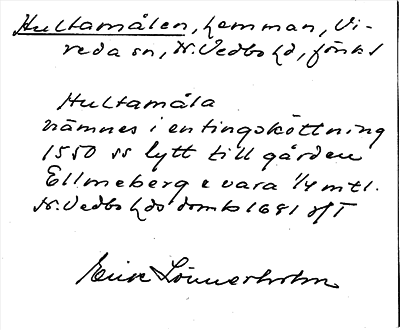 Hultamålen, hemman, Vi-
reda sn, N. Vedbo hd, Jönk l
Hultamåla
nämnes i en tingsköttning
1550 ss lytt till gården
Ellmeberg o vara 1/4 mtl.
N. Vedbo hds domb 1691 8/7
Erik Lönnerholm